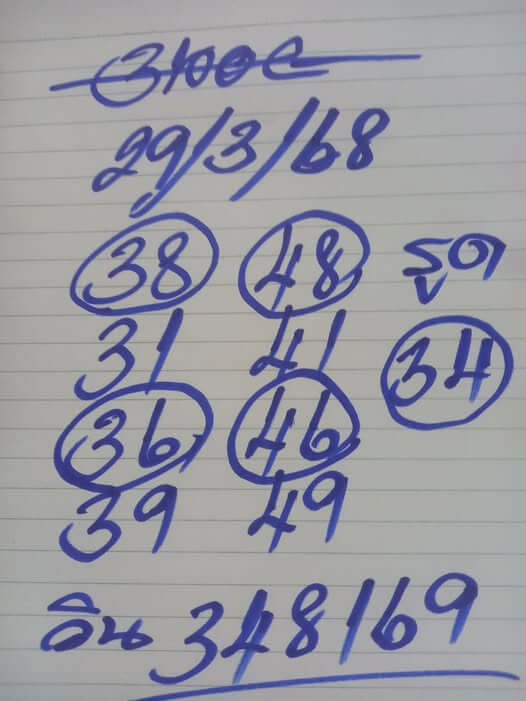 29/3/68
38 48 รูด
31 41 34
36 46
39 49
วิน 348169